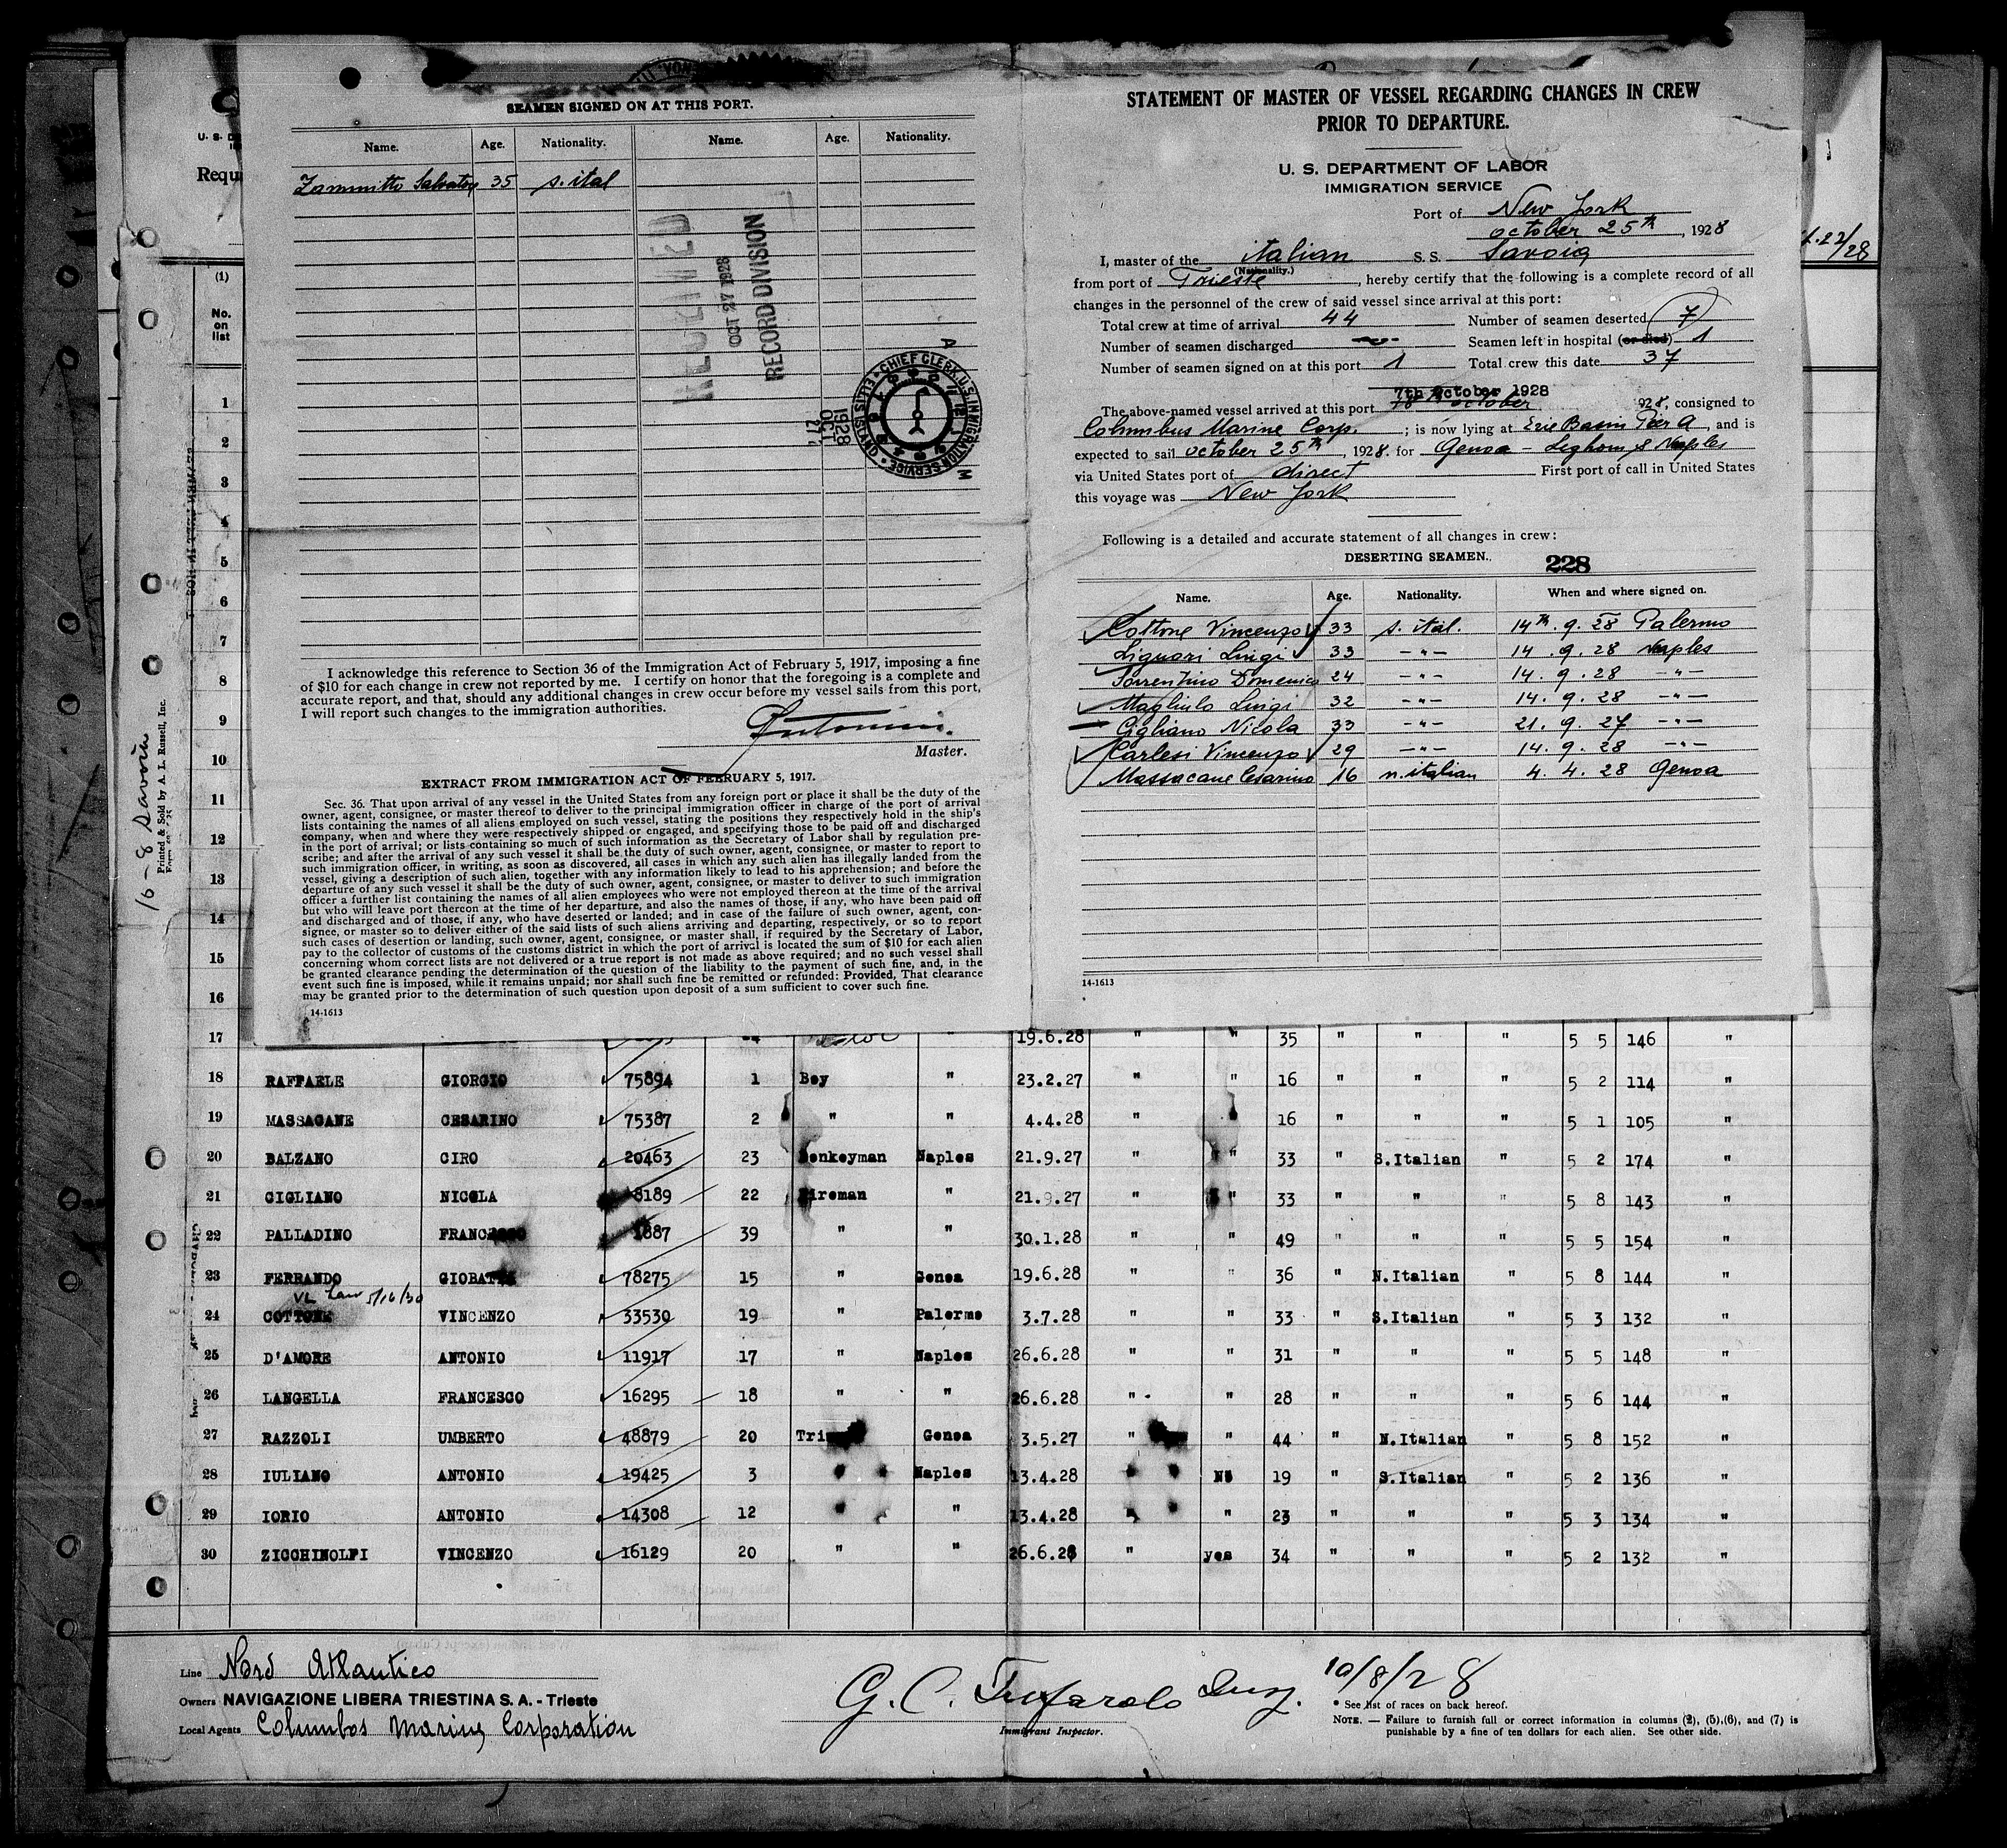 SEAMEN SIGNED ON AT THIS PORT.
Name. Age. Nationality. Name. Age. Nationality.
Zammitto Salvatore 35 s. ital
RECEIVED
OCT 27 1928
RECORD DIVISION
CHIEF CLERK, U.S. IMMIGRATION SERVICE • ELLIS ISLAND •
1928 OCT 27
A M
I acknowledge this reference to Section 36 of the Immigration Act of February 5, 1917, imposing a fine
of $10 for each change in crew not reported by me. I certify on honor that the foregoing is a complete and
accurate report, and that, should any additional changes in crew occur before my vessel sails from this port,
I will report such changes to the immigration authorities.
Master.
EXTRACT FROM IMMIGRATION ACT OF FEBRUARY 5, 1917.
Sec. 36. That upon arrival of any vessel in the United States from any foreign port or place it shall be the duty of the
owner, agent, consignee, or master thereof to deliver to the principal immigration officer in charge of the port of arrival
lists containing the names of all aliens employed on such vessel, stating the positions they respectively hold in the ship's
company, when and where they were respectively shipped or engaged, and specifying those to be paid off and discharged
in the port of arrival; or lists containing so much of such information as the Secretary of Labor shall by regulation pre-
scribe; and after the arrival of any such vessel it shall be the duty of such owner, agent, consignee, or master to report to
such immigration officer, in writing, as soon as discovered, all cases in which any such alien has illegally landed from the
vessel, giving a description of such alien, together with any information likely to lead to his apprehension; and before the
departure of any such vessel it shall be the duty of such owner, agent, consignee, or master to deliver to such immigration
officer a further list containing the names of all alien employees who were not employed thereon at the time of the arrival
but who will leave port thereon at the time of her departure, and also the names of those, if any, who have been paid off
and discharged and of those, if any, who have deserted or landed; and in case of the failure of such owner, agent, con-
signee, or master so to deliver either of the said lists of such aliens arriving and departing, respectively, or so to report
such cases of desertion or landing, such owner, agent, consignee, or master shall, if required by the Secretary of Labor,
pay to the collector of customs of the customs district in which the port of arrival is located the sum of $10 for each alien
concerning whom correct lists are not delivered or a true report is not made as above required; and no such vessel shall
be granted clearance pending the determination of the question of the liability to the payment of such fine, and, in the
event such fine is imposed, while it remains unpaid; nor shall such fine be remitted or refunded: Provided, That clearance
may be granted prior to the determination of such question upon deposit of a sum sufficient to cover such fine.
14-1613
STATEMENT OF MASTER OF VESSEL REGARDING CHANGES IN CREW
PRIOR TO DEPARTURE.
U. S. DEPARTMENT OF LABOR
IMMIGRATION SERVICE
Port of New York
october 25th, 1928
I, master of the italian S. S. Savoia
(Nationality.)
from port of Trieste, hereby certify that the following is a complete record of all
changes in the personnel of the crew of said vessel since arrival at this port:
Total crew at time of arrival 44 Number of seamen deserted 7
Number of seamen discharged Seamen left in hospital (or died) 1
Number of seamen signed on at this port 1 Total crew this date 37
7th October 1928
The above-named vessel arrived at this port october 1928, consigned to
Columbus Marine Corp. ; is now lying at Erie Basin Pier A, and is
expected to sail october 25th, 1928. for Genoa - Leghorn & Naples
via United States port of direct First port of call in United States
this voyage was New York
Following is a detailed and accurate statement of all changes in crew:
DESERTING SEAMEN. 228
Name. Age. Nationality. When and where signed on.
Cottone Vincenzo 33 s. ital. 14th. 9. 28 Palermo
Liguori Luigi 33 -"- 14. 9. 28 Naples
Sorrentino Domenico 24 -"- 14. 9. 28 -"-
Magliulo Luigi 32 -"- 14. 9. 28 -"-
Gigliano Nicola 33 -"- 21. 9. 27 -"-
Carlesi Vincenzo 29 -"- 14. 9. 28 -"-
Massacane Cesarino 16 n. italian 4. 4. 28 Genoa
14-1613
U. S. D
Requ
(1)
No.
on
list
1
2
3
4
5
6
7
8
9
10
11
12
13
14
15
16
16-8 Savoia
Printed & Sold by A. L. Russell, Inc.
22/28
17 " 19.6.28 " " 35 " " " 5 5 146 "
18 RAFFAELE GIORGIO 75894 1 Boy " 23.2.27 " " 16 " " " 5 2 114 "
19 MASSACANE CESARINO 75387 2 " " 4.4.28 " 16 " " " 5 1 105 "
20 BALZANO CIRO 20463 23 Donkeyman Naples 21.9.27 " " 33 " S.Italian " 5 2 174 "
21 GIGLIANO NICOLA 8189 22 Fireman " 21.9.27 " " 33 " " " 5 8 143 "
22 PALLADINO FRANCESCO 1687 39 " " 30.1.28 " " 49 " " " 5 5 154 "
23 FERRANDO GIOBATTA 78275 15 " Genoa 19.6.28 " " 36 " N.Italian " 5 8 144 "
5/16/30
24 COTTONE VINCENZO 33530 19 " Palermo 3.7.28 " " 33 " S.Italian " 5 3 132 "
25 D'AMORE ANTONIO 11917 17 " Naples 26.6.28 " " 31 " " " 5 5 148 "
26 LANGELLA FRANCESCO 16295 18 " " 26.6.28 " " 28 " " " 5 6 144 "
27 RAZZOLI UMBERTO 48879 20 Tri Genoa 3.5.27 " " 44 " N.Italian " 5 8 152 "
28 IULIANO ANTONIO 19425 3 Naples 13.4.28 " No 19 " S.Italian " 5 2 136 "
29 IORIO ANTONIO 14308 12 " 13.4.28 " " 23 " " " 5 3 134 "
30 ZICCHINOLFI VINCENZO 16129 20 " " 26.6.28 " yes 34 " " " 5 2 132 "
Line Nord Atlantico
Owners NAVIGAZIONE LIBERA TRIESTINA S. A. - Trieste
Local Agents Columbos Marine Corporation
G. C. Insp. 10/8/28
Immigrant Inspector.
* See list of races on back hereof.
NOTE. — Failure to furnish full or correct information in columns (2), (5),(6), and (7) is
punishable by a fine of ten dollars for each alien. See other side.